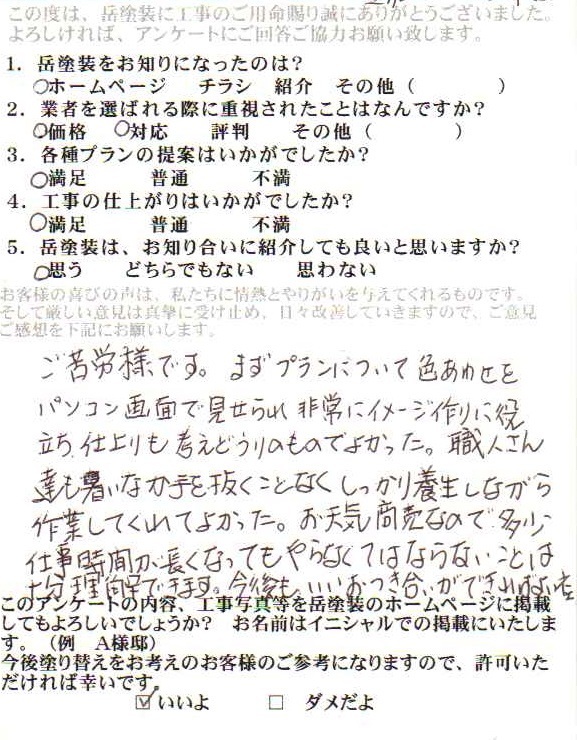 この度は、岳塗装に工事のご用命賜り誠にありがとうございました。
よろしければ、アンケートにご回答ご協力お願い致します。
1．岳塗装をお知りになったのは？
○ホームページ　チラシ　紹介　その他（　　　　）
2．業者を選ばれる際に重視されたことはなんですか？
○価格　○対応　評判　その他（　　　　）
3．各種プランの提案はいかがでしたか？
○満足　普通　不満
4．工事の仕上がりはいかがでしたか？
○満足　普通　不満
5．岳塗装は、お知り合いに紹介しても良いと思いますか？
○思う　どちらでもない　思わない
お客様の喜びの声は、私たちに情熱とやりがいを与えてくれるものです。
そして厳しい意見は真摯に受け止め、日々改善していきますので、ご意見
ご感想を下記にお願いします。
ご苦労様です。まずプランについて色あわせを
パソコン画面で見せられ非常にイメージ作りに役
立ち、仕上りも考えどうりのものでよかった。職人さん
達も暑いなか手を抜くことなくしっかり養生しながら
作業してくれてよかった。お天気商売なので多少
仕事時間が長くなってもやらなくてはならないことは
十分理解できます。今後も、いいおつき合いができれば
このアンケートの内容、工事写真等を岳塗装のホームページに掲載
してもよろしいでしょうか？　お名前はイニシャルでの掲載にいたしま
す。（例　A様邸）
今後塗り替えをお考えのお客様のご参考になりますので、許可いた
だければ幸いです。
☑いいよ　□　ダメだよ